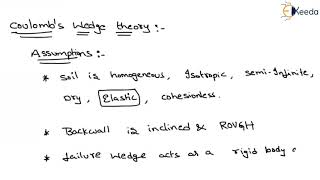 Ekeeda
Coulomb's Wedge theory :-
Assumptions :-
* Soil is homogeneous, Isotropic, semi-Infinite,
Dry, Elastic, cohesionless.
* Backwall is inclined & ROUGH
* failure wedge acts as a rigid body &